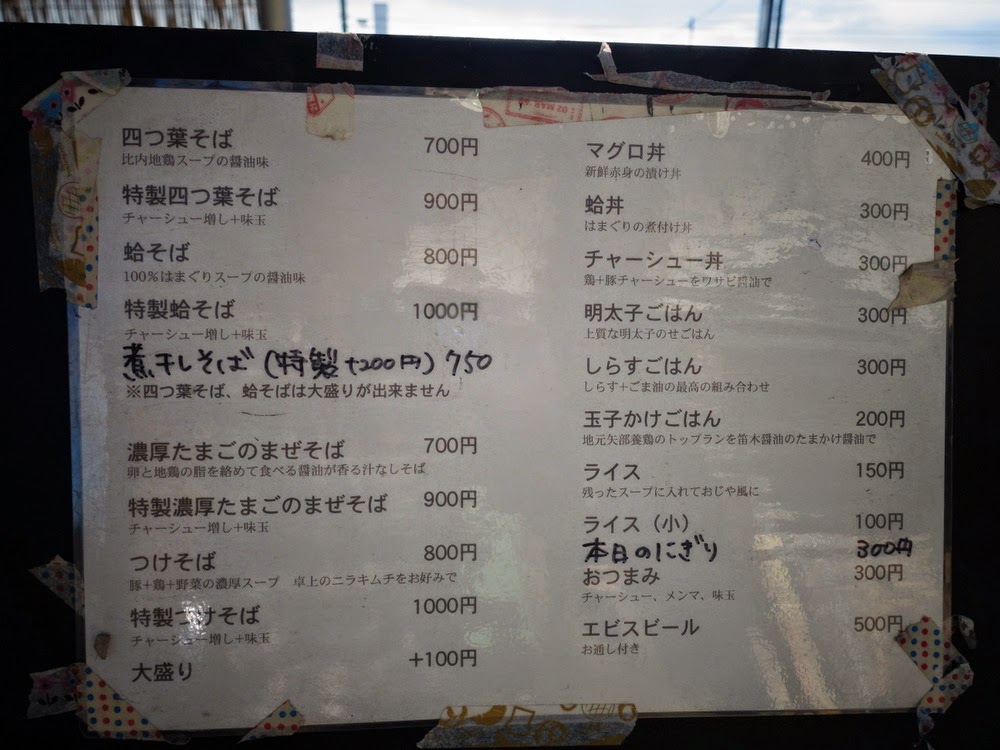 四つ葉そば 700円
比内地鶏スープの醤油味
特製四つ葉そば 900円
チャーシュー増し+味玉
蛤そば 800円
100%はまぐりスープの醤油味
特製蛤そば 1000円
チャーシュー増し+味玉
煮干しそば (特製+200円) 750
※四つ葉そば、蛤そばは大盛りが出来ません
濃厚たまごのまぜそば 700円
卵と地鶏の脂を絡めて食べる醤油が香る汁なしそば
特製濃厚たまごのまぜそば 900円
チャーシュー増し+味玉
つけそば 800円
豚+鶏+野菜の濃厚スープ 卓上のニラキムチをお好みで
特製つけそば 1000円
チャーシュー増し+味玉
大盛り +100円
マグロ丼 400円
新鮮赤身の漬け丼
蛤丼 300円
はまぐりの煮付け丼
チャーシュー丼 300円
鶏+豚チャーシューをワサビ醤油で
明太子ごはん 300円
上質な明太子のせごはん
しらすごはん 300円
しらす+ごま油の最高の組み合わせ
玉子かけごはん 200円
地元矢部養鶏のトップランを笛木醤油のたまかけ醤油で
ライス 150円
残ったスープに入れておじや風に
ライス(小) 100円
本日のにぎり 300円
おつまみ 300円
チャーシュー、メンマ、味玉
エビスビール 500円
お通し付き